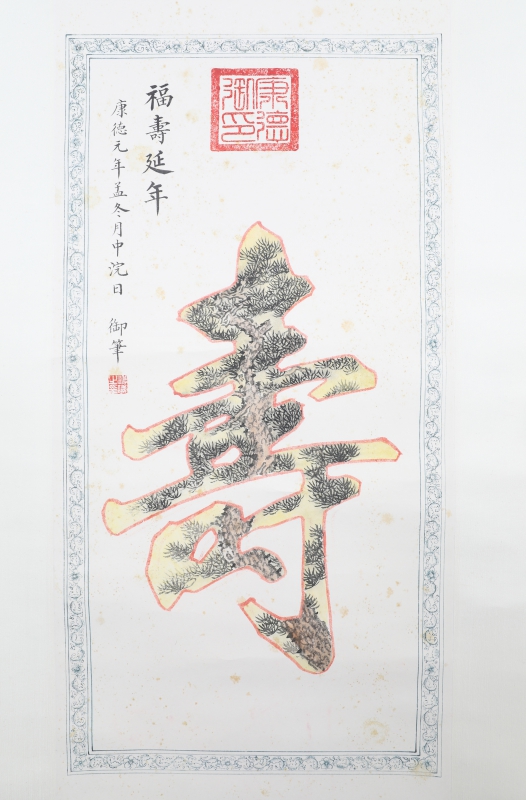 康德御印
壽
福壽延年
康德元年孟冬月中浣日 御筆